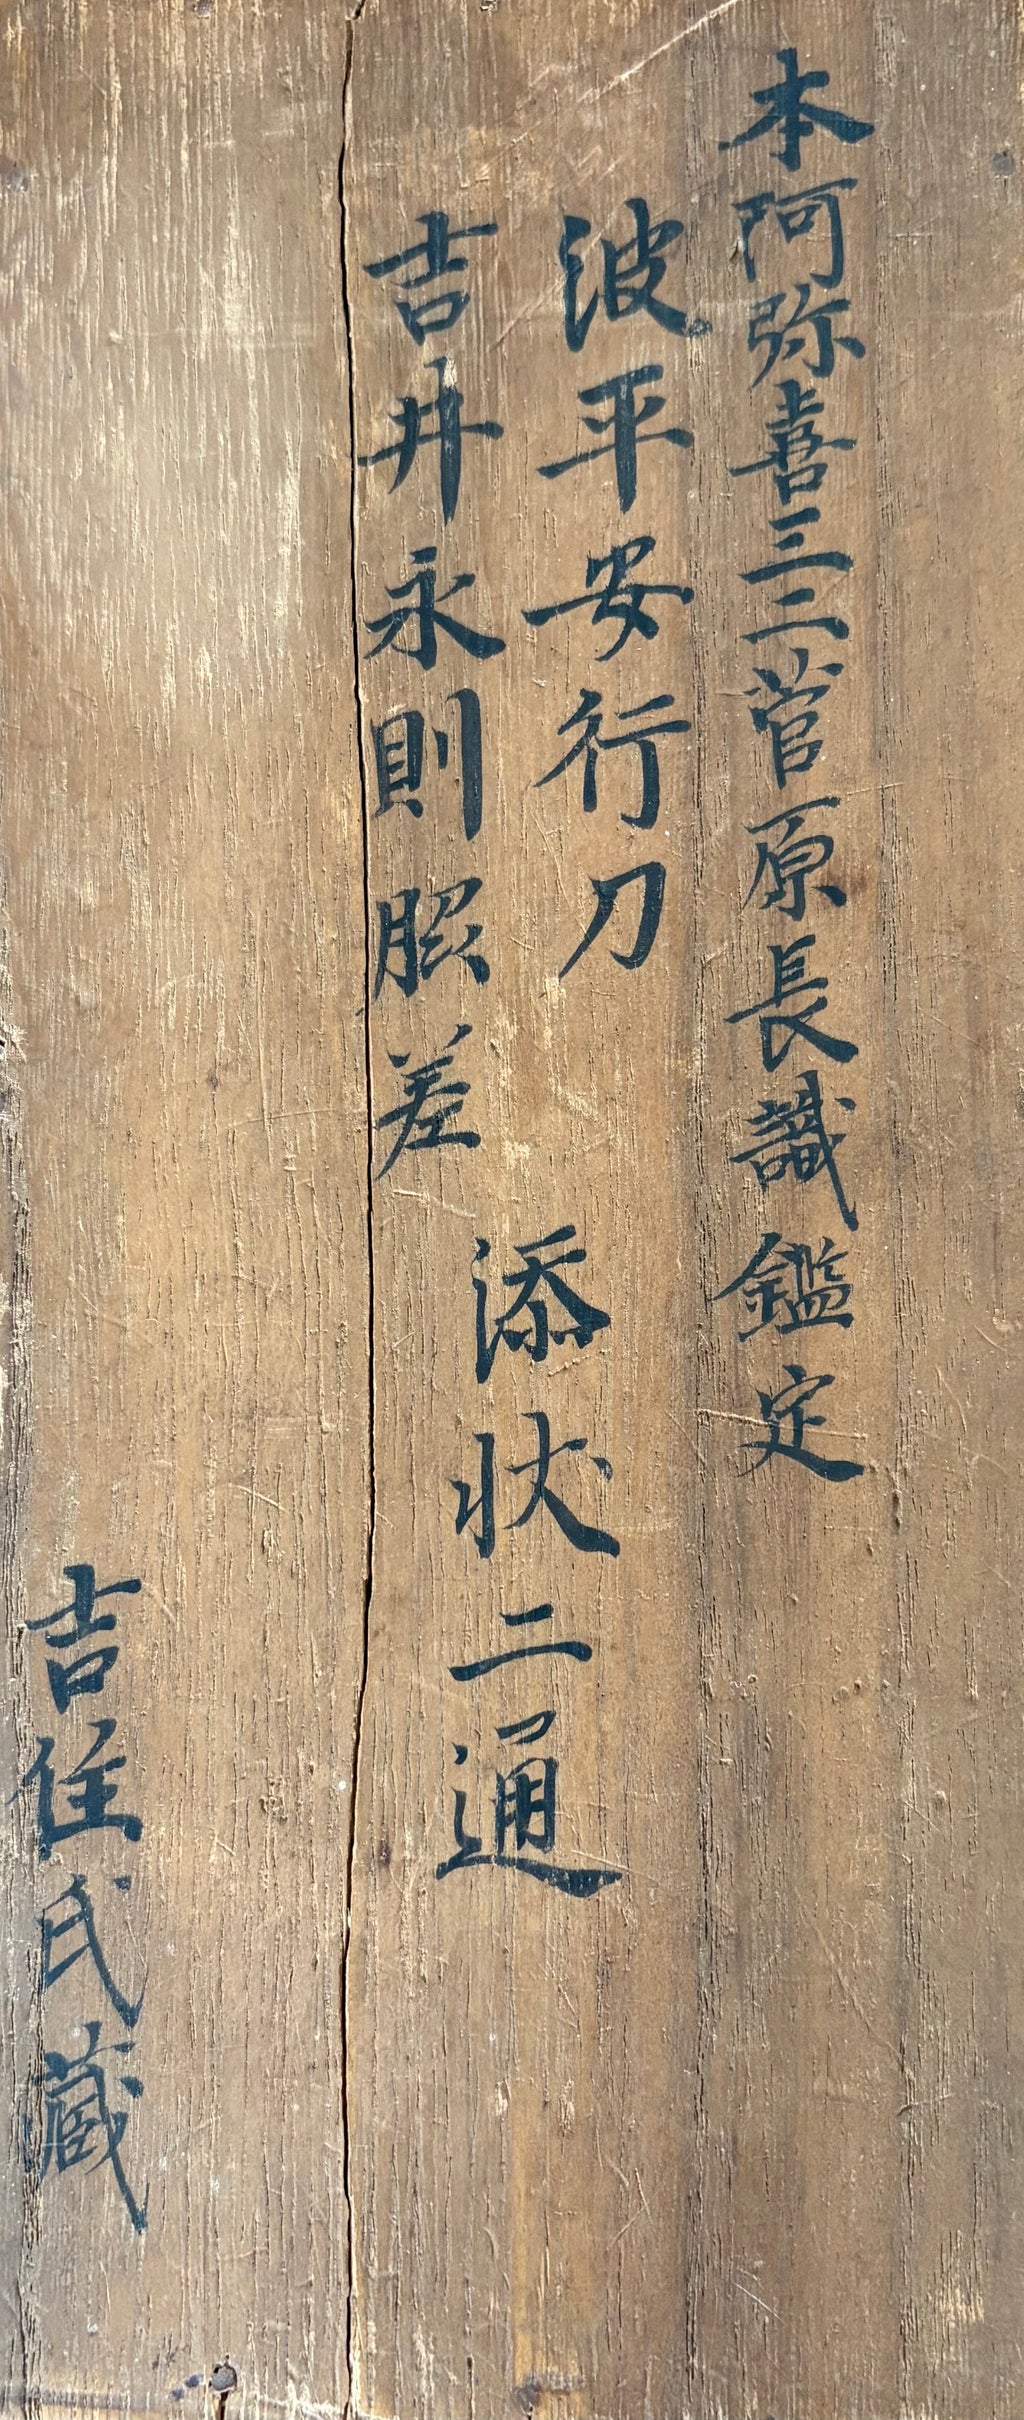 本阿弥喜三二菅原長識鑑定
波平安行刀
吉井永則脇差
添状二通
吉住氏蔵